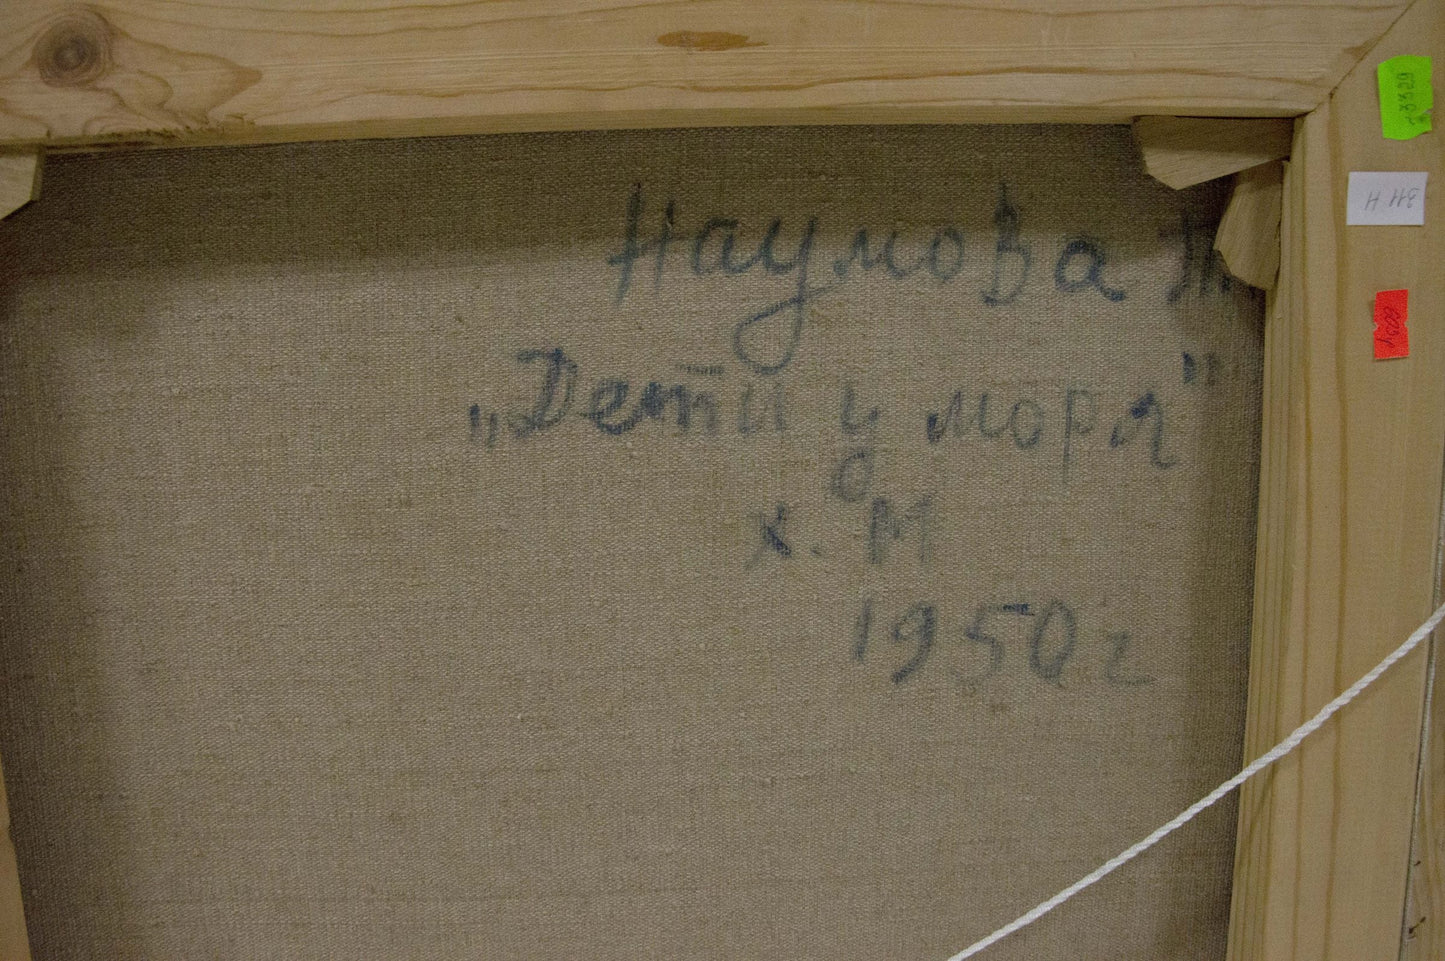 Наумова
„Дети у моря"
х. м
1950 г
311 Н